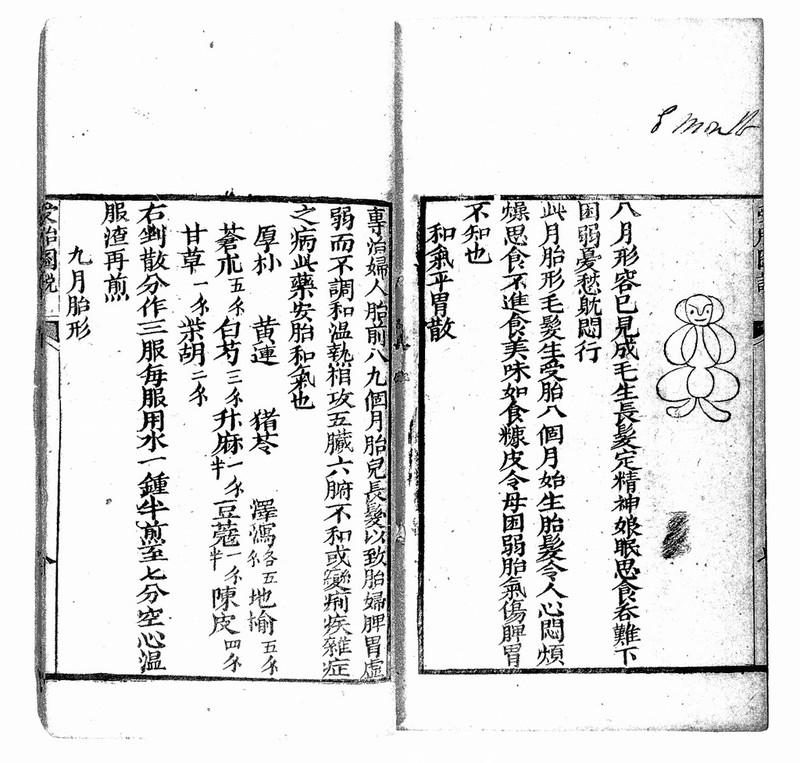 8 month
八月形容已見成毛生長髮定精神娘眠思食吞難下
困弱憂愁躭悶行
此月胎形毛髮生受胎八個月始生胎髮令人心悶煩
燥思食不進食美味如食糠皮令母困弱胎氣傷脾胃
不知也
和氣平胃散
專治婦人胎前八九個月胎兒長髮以致胎婦脾胃虛
弱而不調和温熱相攻五臟六腑不和或變痢疾雜症
之病此藥安胎和氣也
厚朴 黄連 猪苓 澤瀉各五分 地榆五分
蒼朮五分 白芍三分 升麻一分半 豆蔻一分半 陳皮四分
甘草一分 柴胡二分
右剉散分作三服每服用水一鍾半煎至七分空心温
服渣再煎
九月胎形
受胎圖説